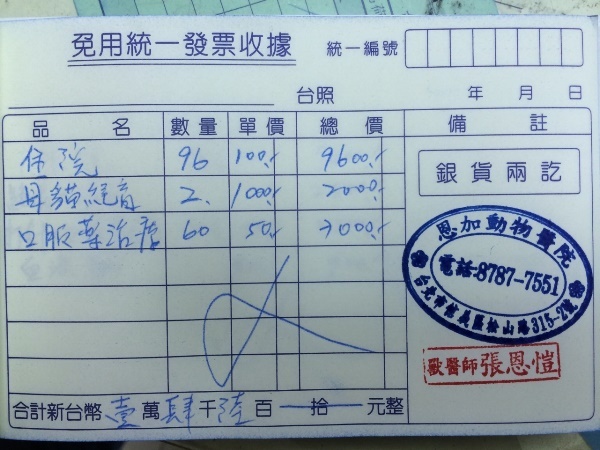 免用統一發票收據 統一編號
台照 年 月 日
品名 數量 單價 總價 備註
住院 96 100.- 9600.-
母貓結育 2. 1000.- 2000.-
口服藥治療 60 50.- 3000.-
銀貨兩訖
恩加動物醫院
電話:8787-7551
台北市信義區松山路315-2號
獸醫師 張恩愷
合計新台幣 壹 萬 肆 千 陸 百 — 拾 — 元整